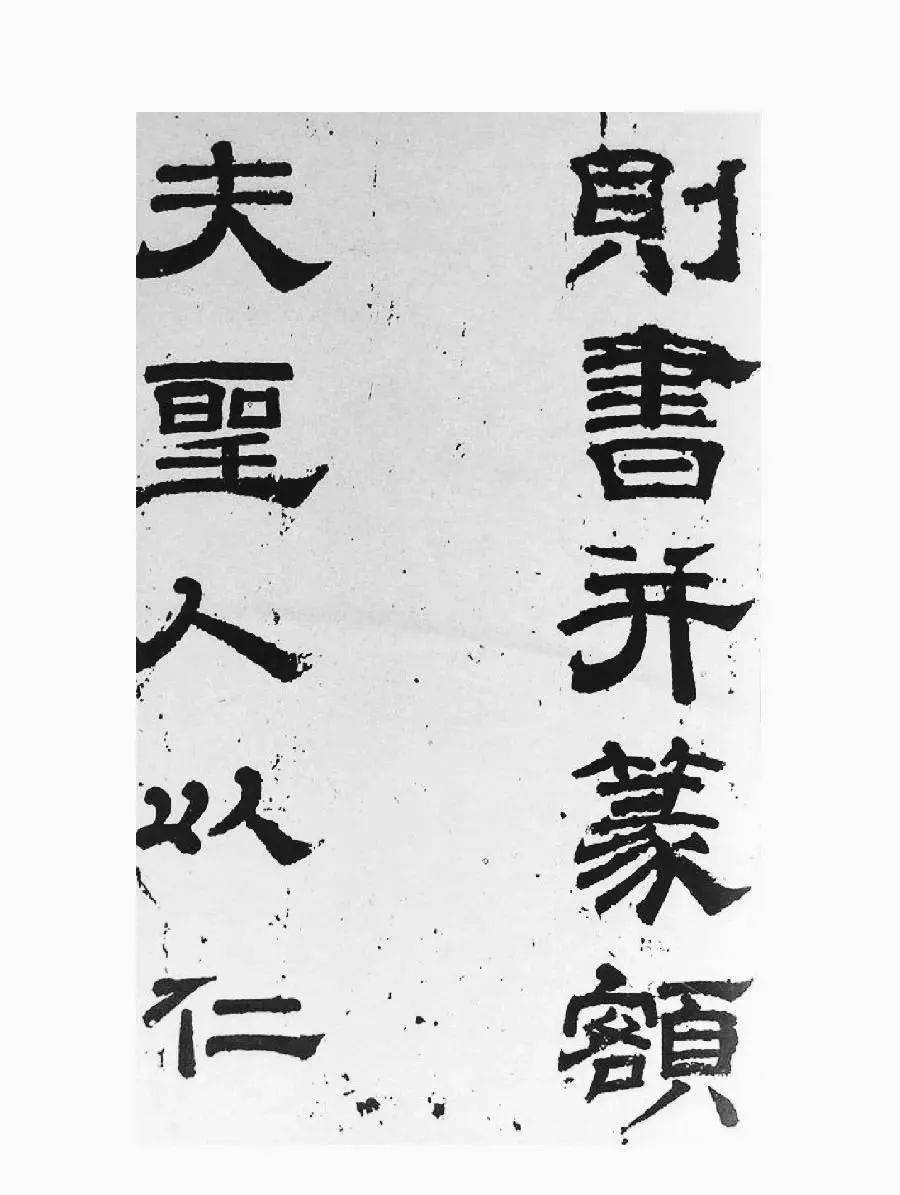 則書并篆額
夫聖人以仁